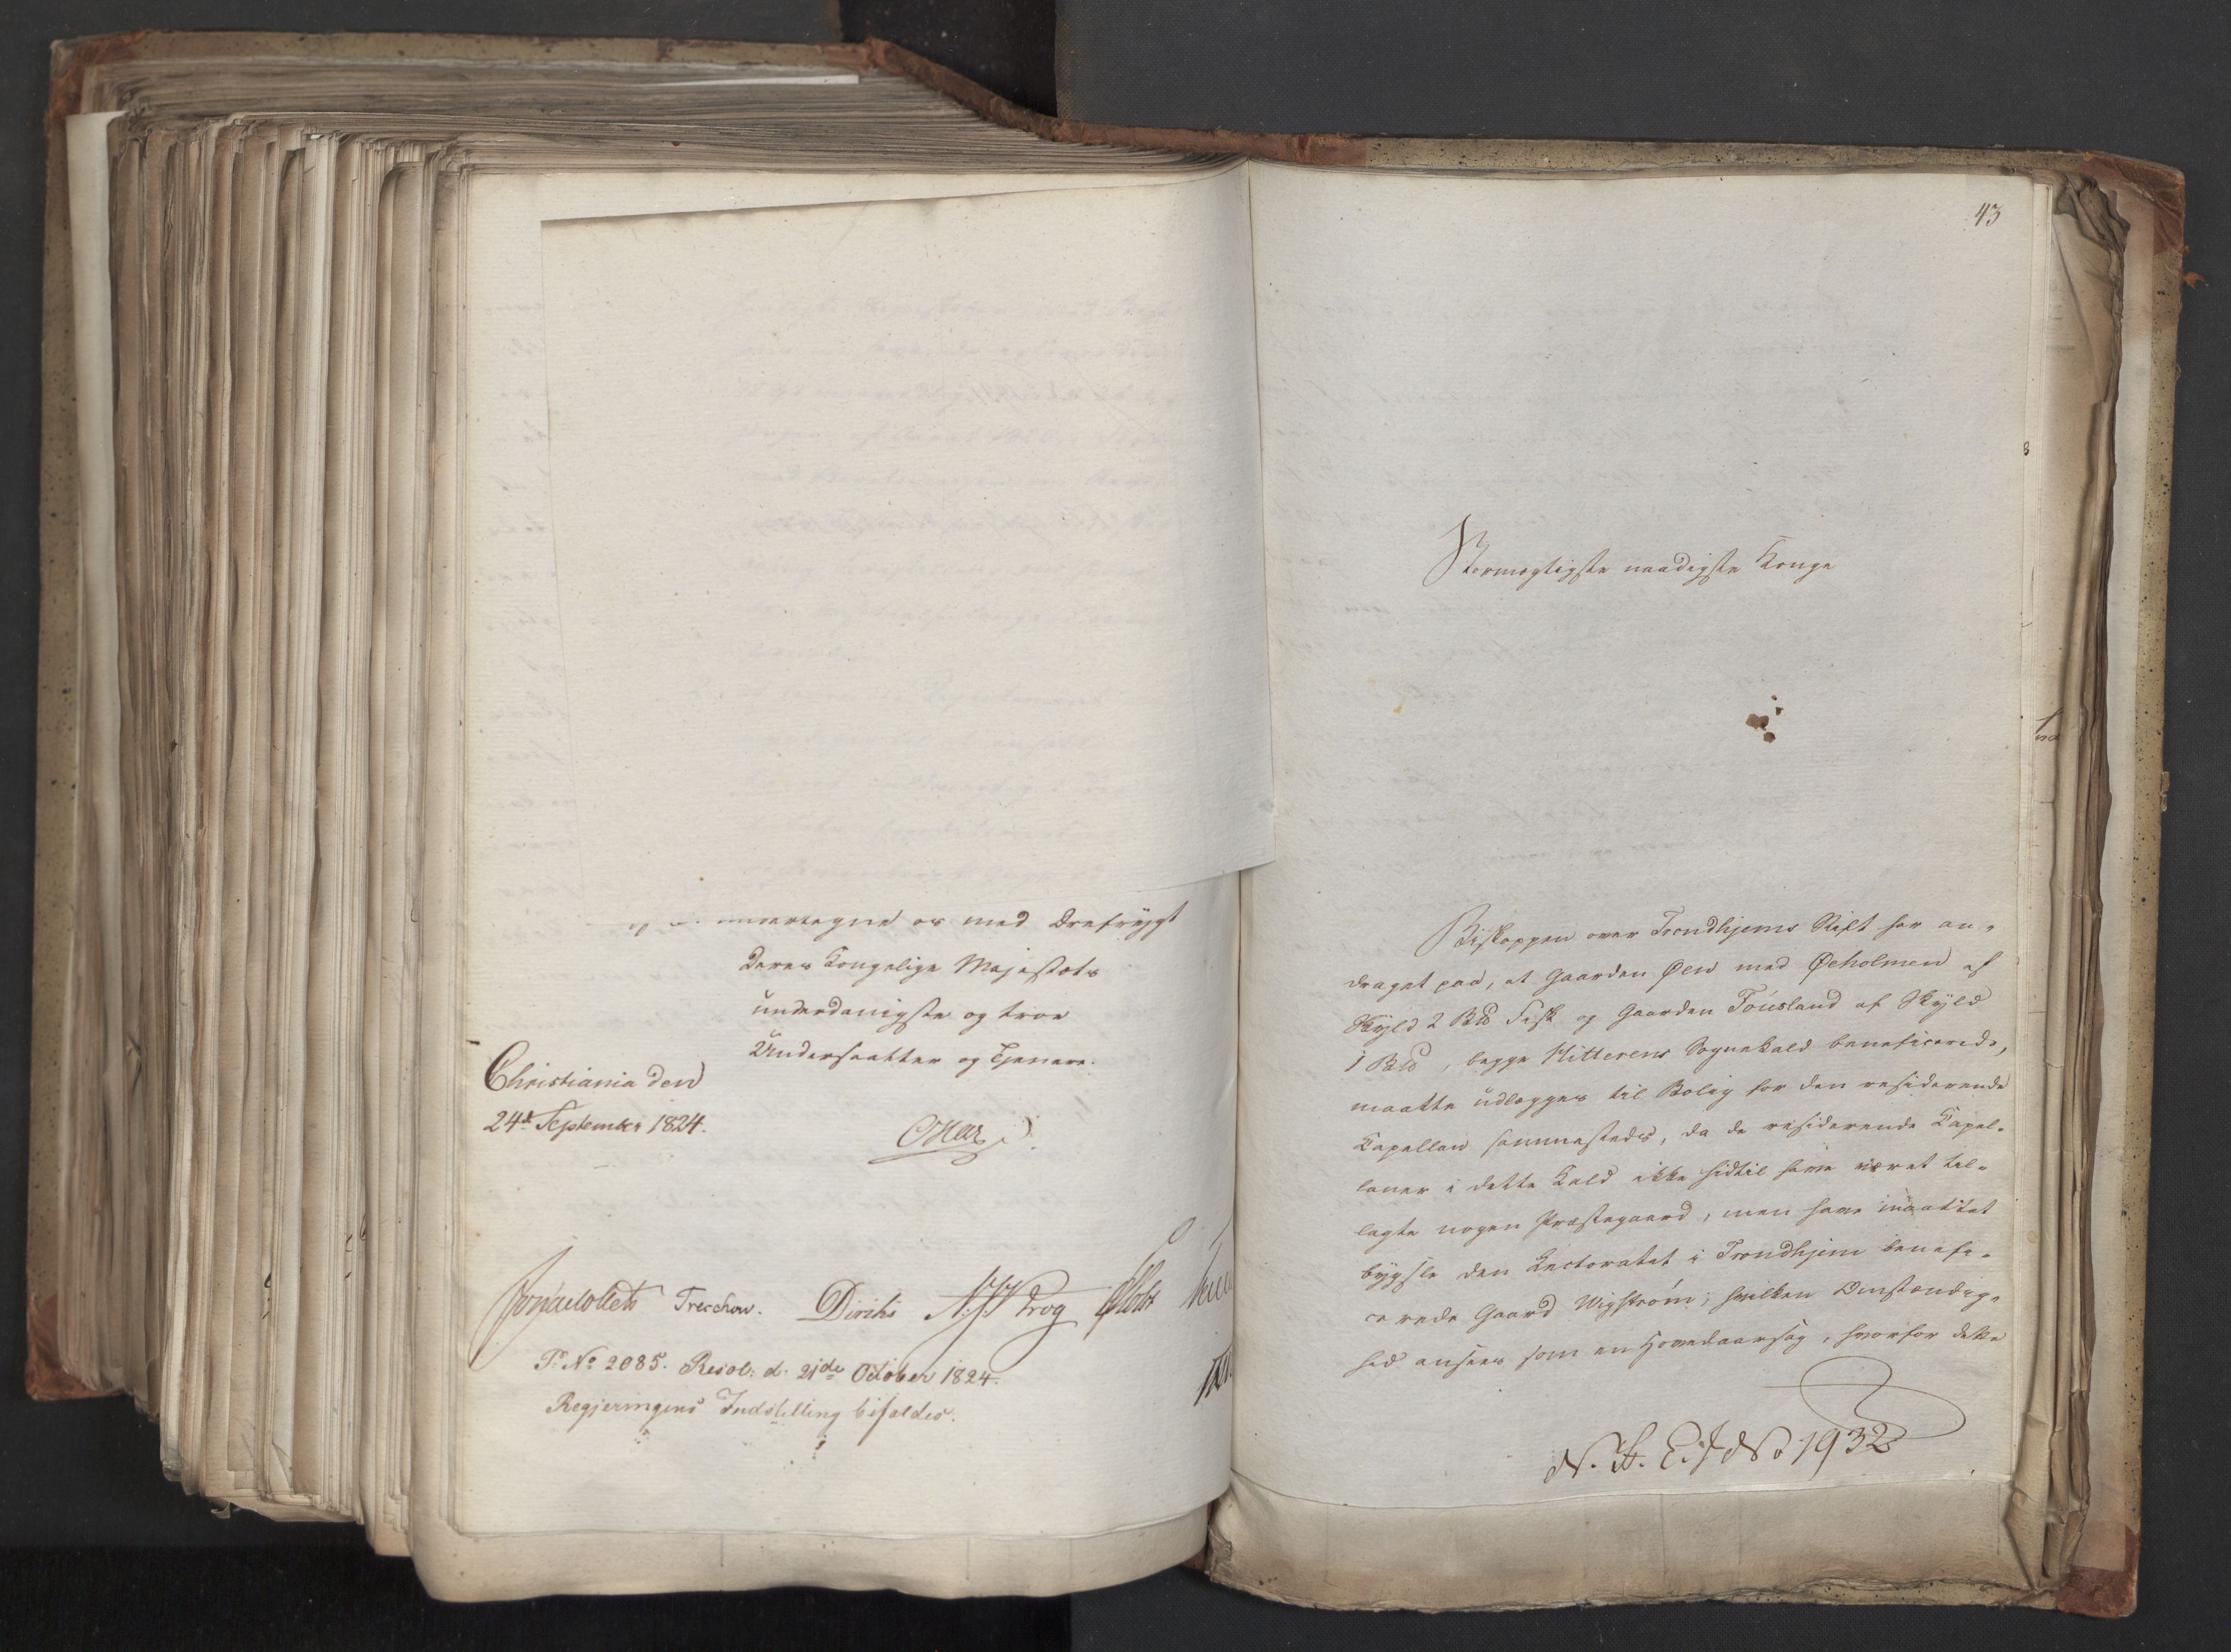 undertegne os med Ærefrygt
Deres Kongelige Majestæts
underdanigste og troe
Undersaatter og Tjenere.
Christiania den
24de September 1824.
Treschow. Diriks
Pr No 2085. Resol: d. 21de October 1824.
Regjeringens Indstilling bifaldes.
43
Stormægtigste naadigste Konge
Biskoppen over Trondhjems Stift har an-
draget paa, at Gaarden Øen med Øeholmen af
Skyld 2 Fisk og Gaarden Fousland af Skyld
1 , begge Hitterens Sognekald beneficerede,
maatte udlægges til Bolig for den residerende
Kapellan sammesteds, da de residerende Kapel-
laner i dette Kald ikke hidtil have været til-
lagte nogen Præstegaard, men have maattet
bygsle den Lectoratet i Trondhjem benefi-
cerede Gaard Wigstrøm; hvilken Omstændig-
hed ansees som en Hovedaarsag, hvorfor dette
No 1932